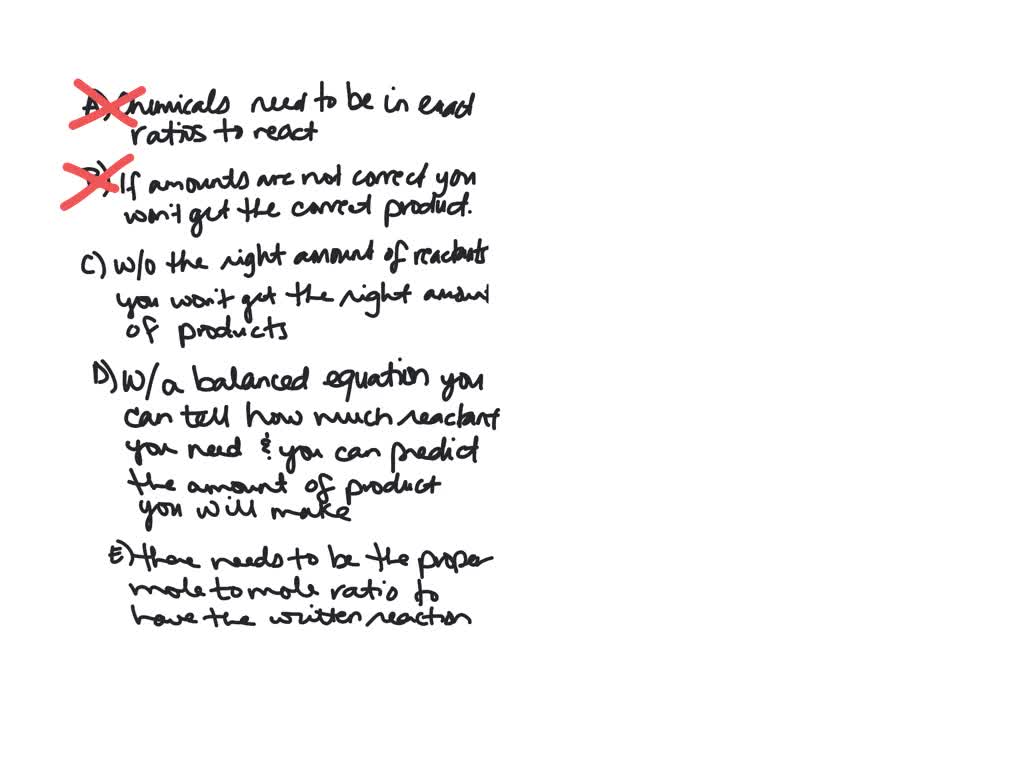 A) Chemicals need to be in exact
ratios to react
B) If amounts are not correct you
won't get the correct product.
C) w/o the right amount of reactants
you won't get the right amount
of products
D) w/ a balanced equation you
can tell how much reactant
you need & you can predict
the amount of product
you will make
E) there needs to be the proper
mole to mole ratio to
have the written reaction